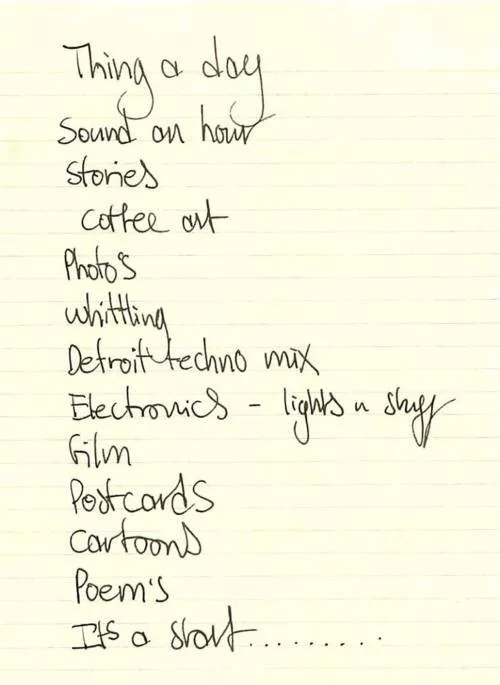 Thing a day
Sound an hour
Stories
Coffee art
Photo's
Whittling
Detroit techno mix
Electronics - lights n stuff
Film
Postcards
Cartoons
Poem's
It's a start.........